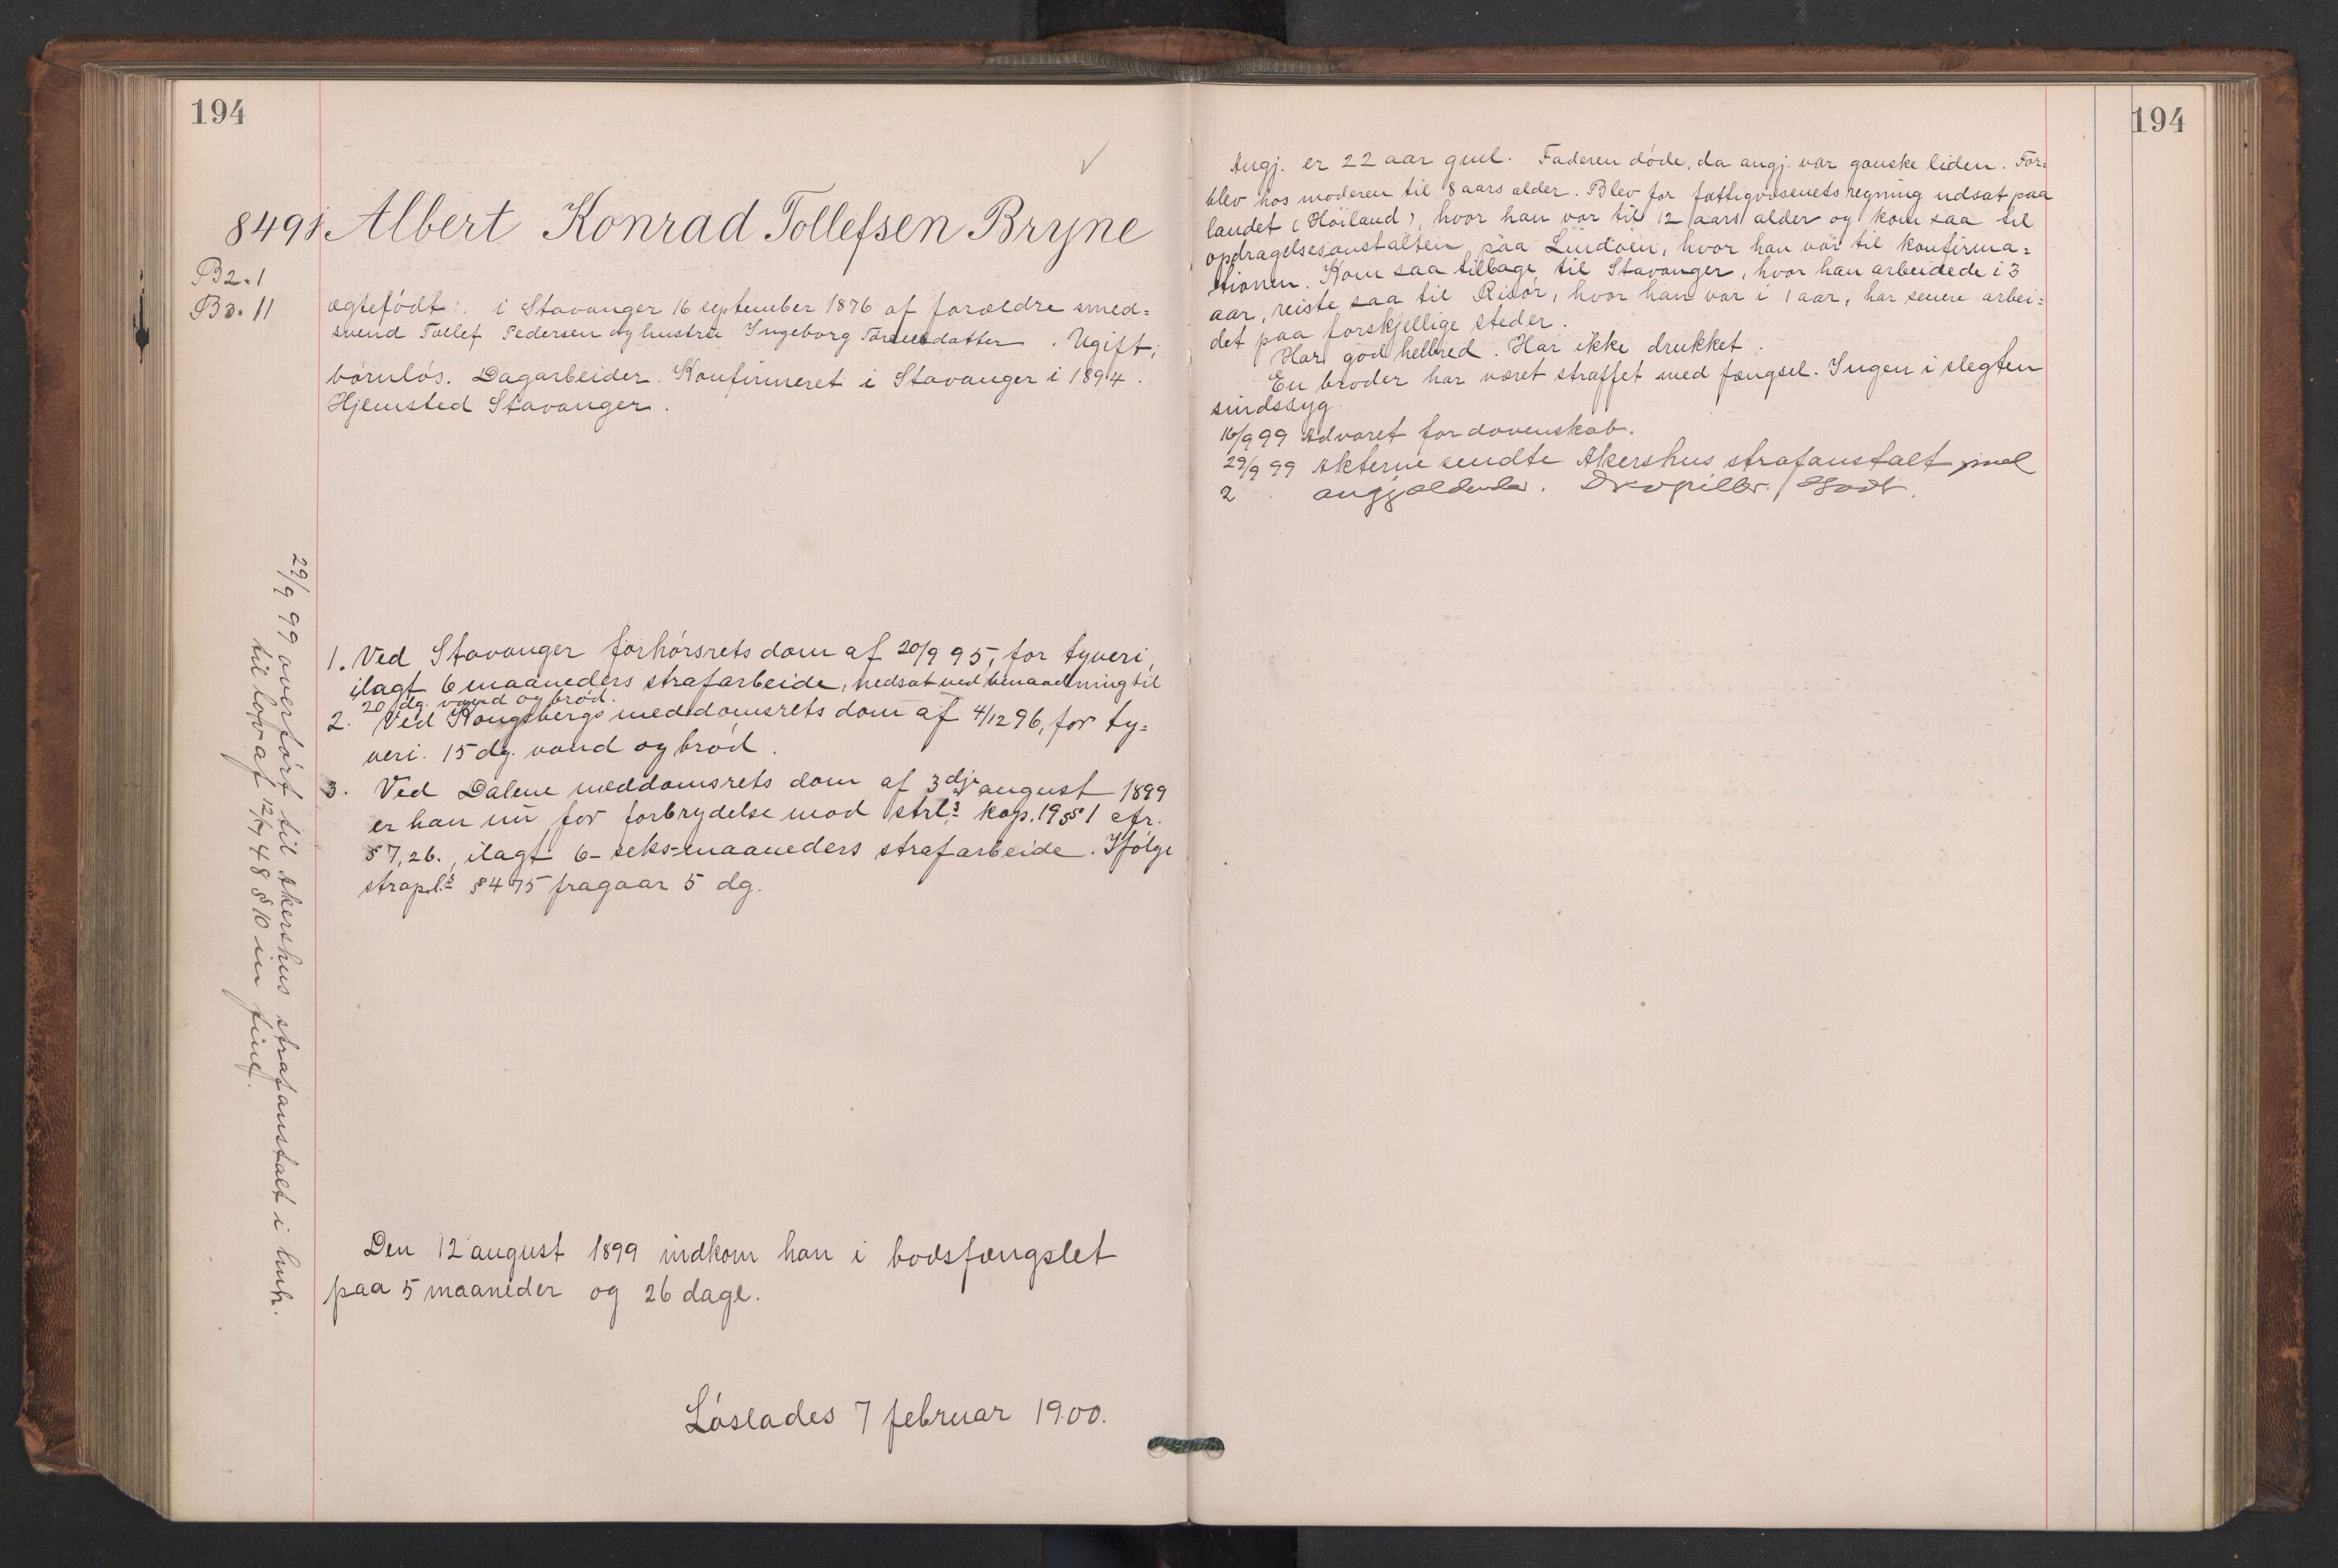 194
8491. Albert Konrad Tollefsen Bryne
B2. 1
B3. 11
ægtefødt: i Stavanger 16 september 1876 af forældre smed=
svend Tollef Pedersen og hustru Ingeborg Tørresdatter. Ugift,
børnløs. Dagarbeider. Konfirmeret i Stavanger i 1894.
Hjemsted Stavanger.
29/9 99 overført til Akershus strafanstalt i hnh.
til lov af 12/7 48 § 10 in fine.
1. Ved Stavanger forhørsrets dom af 20/9 95, for tyveri,
ilagt 6 maaneders strafarbeide, nedsat ved benaadning til
20 dg. vand og brød.
2. Ved Kongsbergs meddomsrets dom af 4/12 96, for ty=
veri. 15 dg. vand og brød.
3. Ved Dalene meddomsrets dom af 3dje august 1899
er han nu for forbrydelse mod strl.s kap. 19 § 1 cfr.
§ 7, 26., ilagt 6- seks-maaneders strafarbeide. Ifølge
strapl.s § 475 fragaar 5 dg.
Den 12 august 1899 indkom han i bodsfængslet
paa 5 maaneder og 26 dage.
Løslades 7 februar 1900.
194
Angj. er 22 aar gml. Faderen døde, da angj. var ganske liden. For=
blev hos moderen til 8 aars alder. Blev for fattigvæsenets regning udsat paa
landet (Høiland), hvor han var til 12 aars alder og kom saa til
opdragelsesanstalten paa Lindøen, hvor han var til konfirma=
tionen. Kom saa tilbage til Stavanger, hvor han arbeidede i 3
aar, reiste saa til Risør, hvor han var i 1 aar, har senere arbei=
det paa forskjellige steder.
Har god helbred. Har ikke drukket.
En broder har været straffet med fængsel. Ingen i slegten
sindssyg.
16/9 99 Advaret for dovenskab.
29/9 99 Akterne sendte Akershus strafanstalt med
2 angjældende.